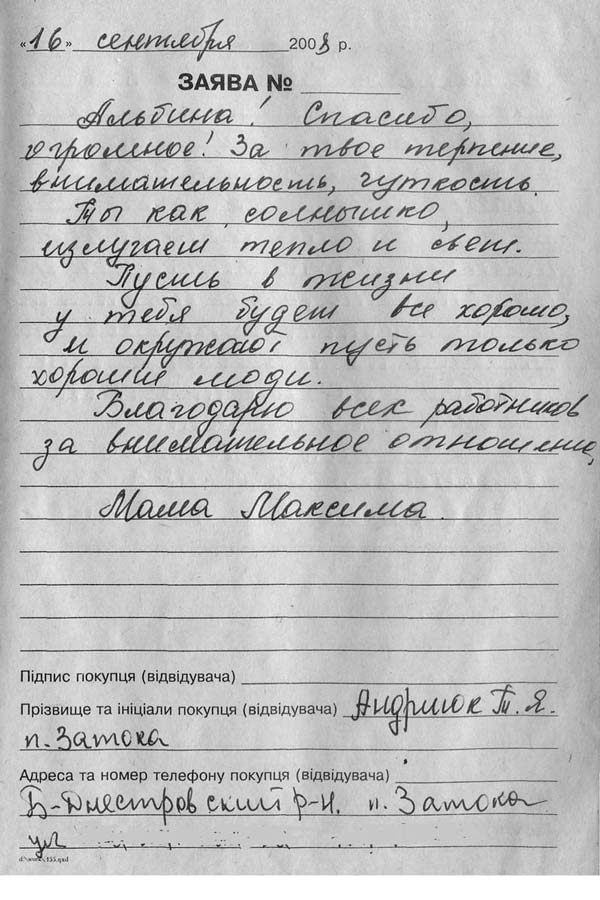 «16» сентября 2008 р.
ЗАЯВА №
Альбина! Спасибо,
огромное! За твое терпение,
внимательность, чуткость.
Ты как солнышко,
излучаеш тепло и свет.
Пусть в жизни
у тебя будет все хорошо,
и окружают пусть только
хорошие люди.
Благодарю всех работников
за внимательное отношение,
Мама Максима.
Підпис покупця (відвідувача)
Прізвище та ініціали покупця (відвідувача) Андриюк Т. Я.
п. Затока
Адреса та номер телефону покупця (відвідувача)
Б-Днестровский р-н. п. Затока
ул